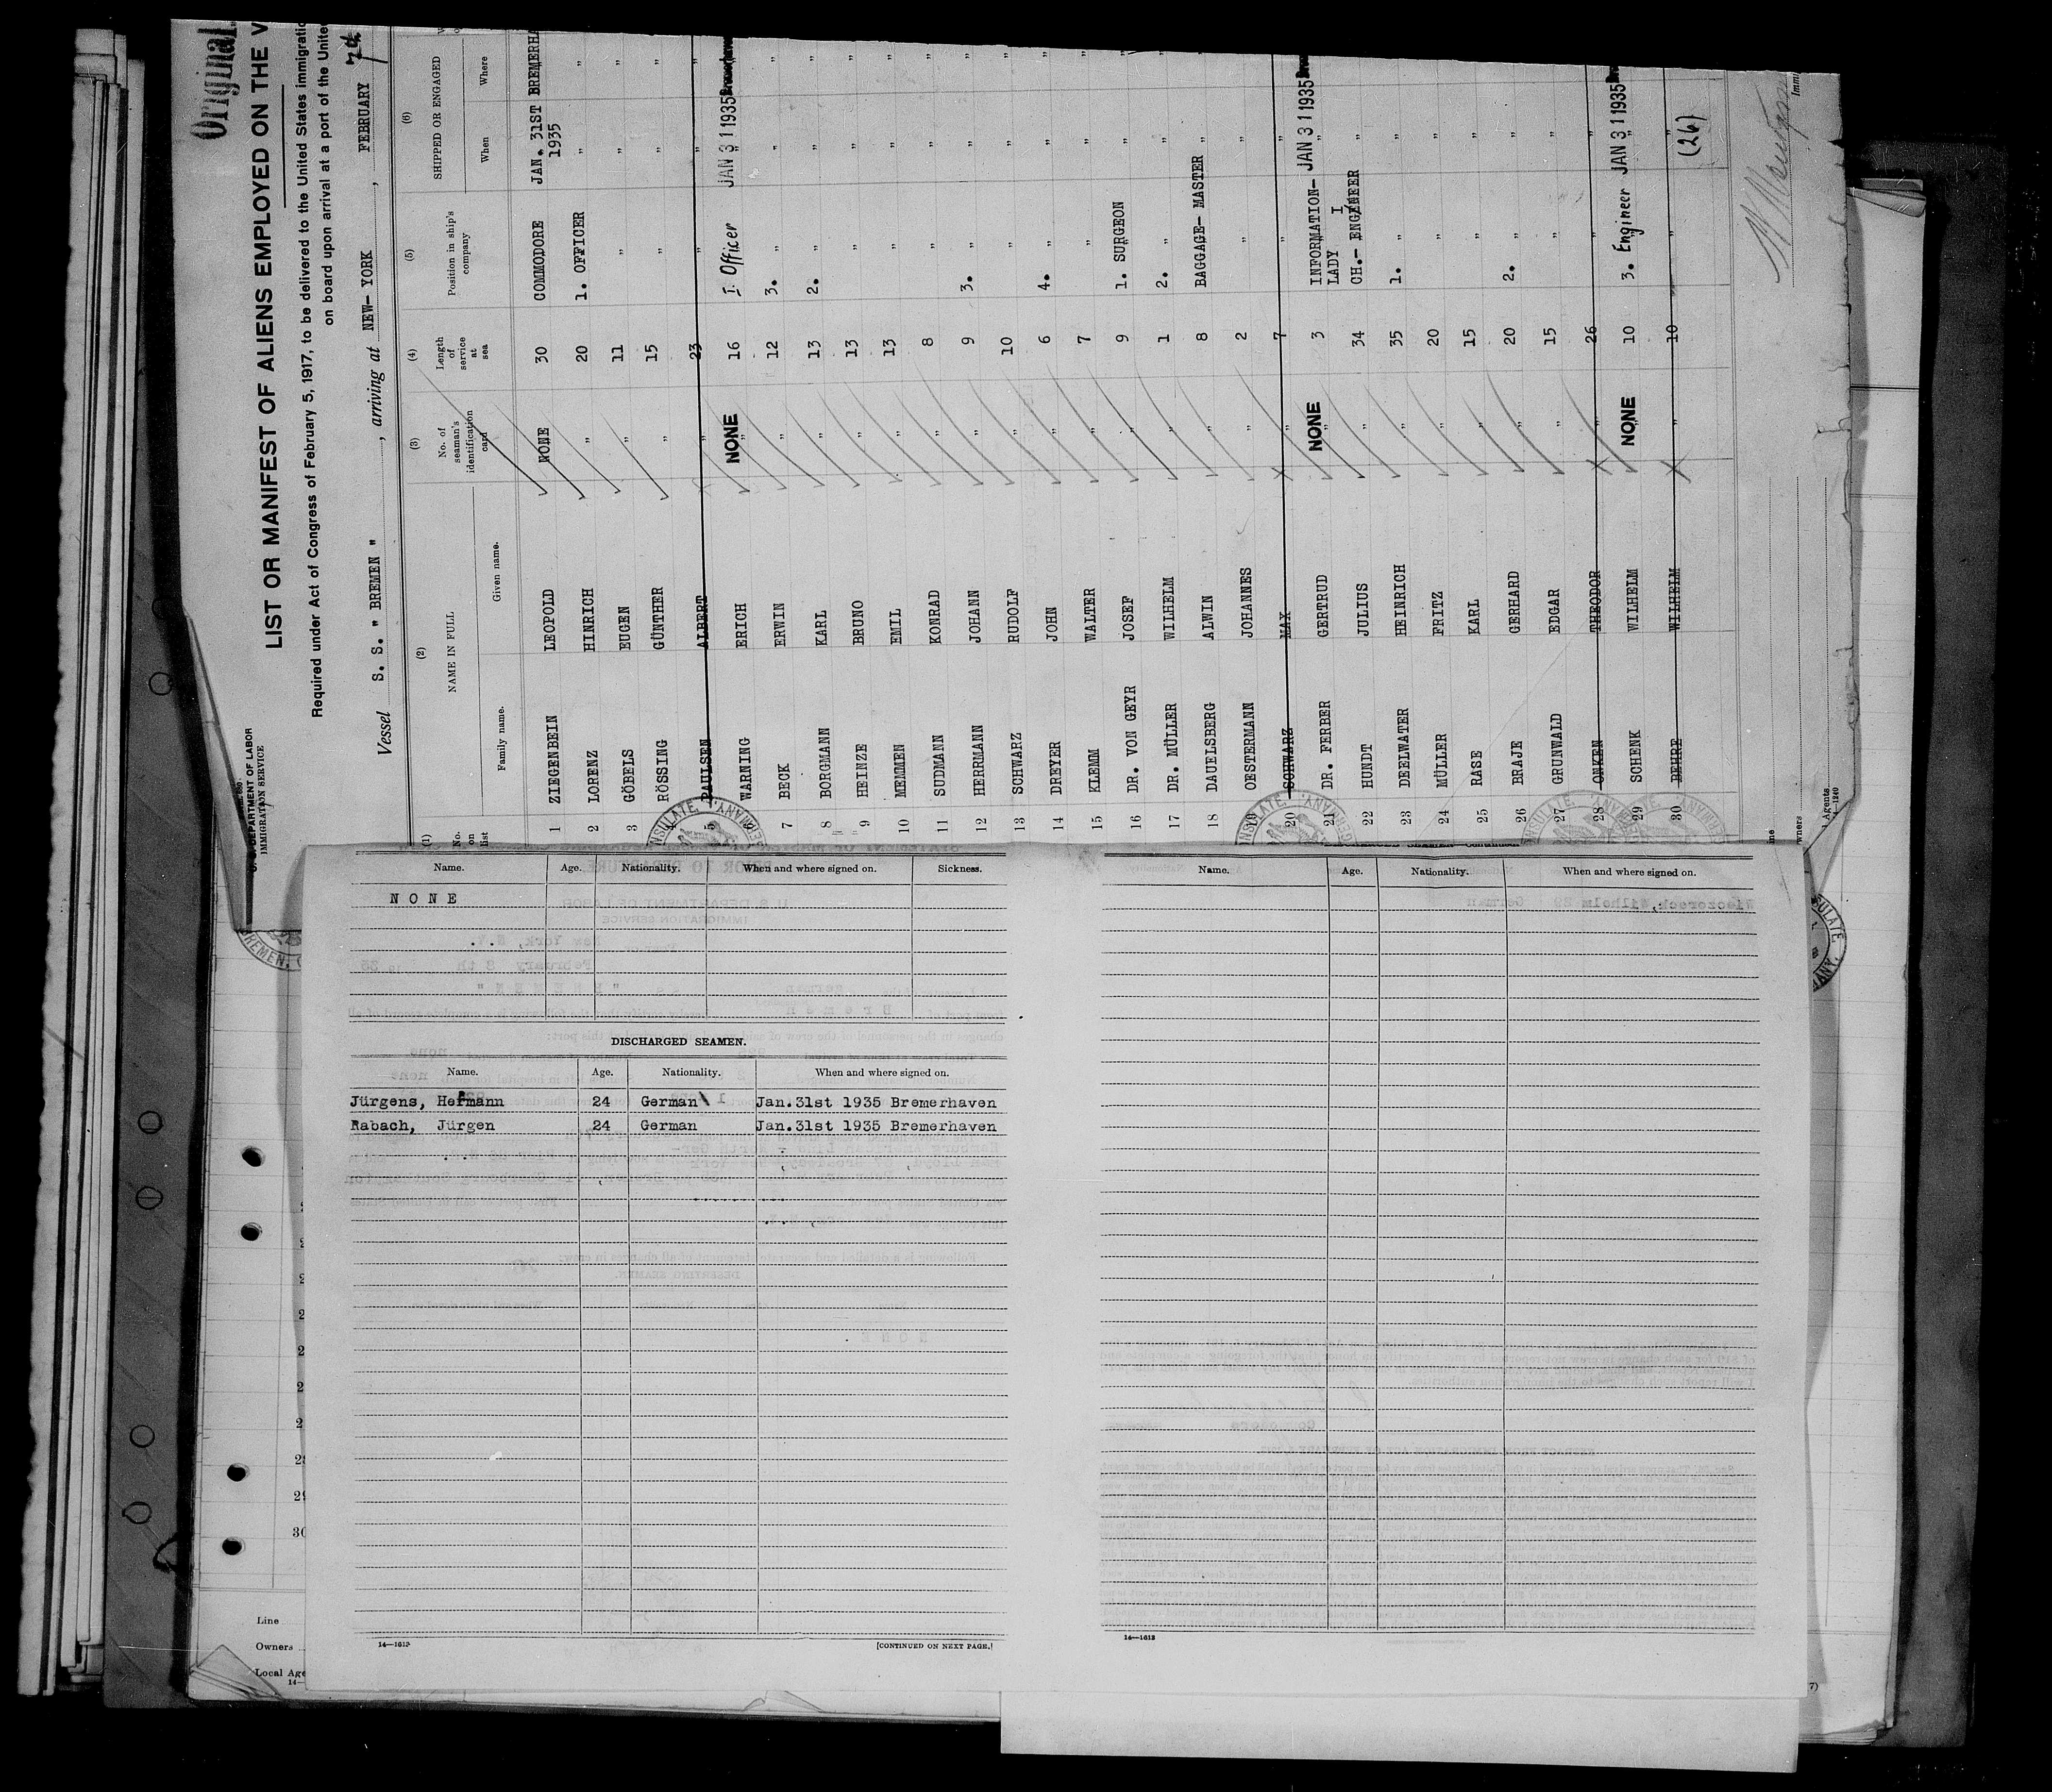 Original
U. S. DEPARTMENT OF LABOR
IMMIGRATION SERVICE
LIST OR MANIFEST OF ALIENS EMPLOYED ON THE V
Required under Act of Congress of February 5, 1917, to be delivered to the United States immigratio
on board upon arrival at a port of the Unite
Vessel S. S. " BREMEN " , arriving at NEW- YORK , FEBRUARY 7th
(1) (2) (3) (4) (5) (6)
No. on list NAME IN FULL No. of seaman's identification card Length of service at sea Position in ship's company SHIPPED OR ENGAGED
Family name. Given name. When Where
1 ZIEGENBEIN LEOPOLD NONE 30 COMMODORE JAN. 31ST 1935 BREMERHA
2 LORENZ HINRICH " 20 1. OFFICER " "
3 GÖBELS EUGEN " 11 " " "
RÖSSING GÜNTHER " 15 " " "
5 PAULSEN ALBERT " 23 " " "
WARNING ERICH NONE 16 I. Officer JAN 31 1935 Bremerhaven
7 BECK ERWIN " 12 3. " " "
8 BORGMANN KARL " 13 2. " " "
9 HEINZE BRUNO " 13 " " "
10 MEMMEN EMIL " 13 " " "
11 SUDMANN KONRAD " 8 " " "
12 HERRMANN JOHANN " 9 3. " " "
13 SCHWARZ RUDOLF " 10 " " "
14 DREYER JOHN " 6 4. " " "
15 KLEMM WALTER " 7 " " "
16 DR. VON GEYR JOSEF " 9 1. SURGEON " "
17 DR. MÜLLER WILHELM " 1 2. " " "
18 DAUELSBERG ALWIN " 8 BAGGAGE- MASTER "
19 OESTERMANN JOHANNES " 2 " "
20 SCHWARZ MAX " 7 " "
21 DR. FERBER GERTRUD NONE 3 INFORMATION- LADY JAN 31 1935
22 HUNDT JULIUS " 34 CH.- ENGINEER "
23 DEELWATER HEINRICH " 35 1. " "
24 MÜLLER FRITZ " 20 " "
25 RASE KARL " 15 " "
26 BRAJE GERHARD " 20 2. " "
27 GRUNWALD EDGAR " 15 " "
28 ONKEN THEODOR " 26 " "
29 SCHENK WILHELM NONE 10 3. Engineer JAN 31 1935
30 BEHRE WILHELM " 10 " "
(26)
Name. Age. Nationality. When and where signed on. Sickness.
NONE
DISCHARGED SEAMEN.
Name. Age. Nationality. When and where signed on.
Jürgens, Hermann 24 German Jan.31st 1935 Bremerhaven
Rabach, Jürgen 24 German Jan.31st 1935 Bremerhaven
14—1613
[CONTINUED ON NEXT PAGE.]
Name. Age. Nationality. When and where signed on.
14—1613
29
30
Line
Owners
Local Age